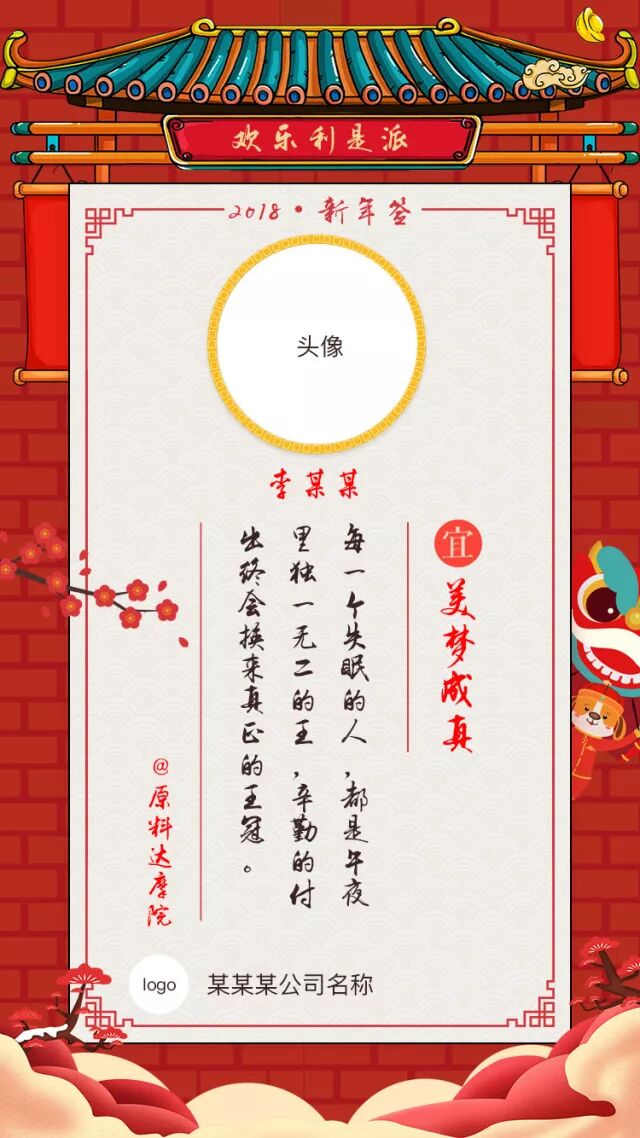 欢乐利是派
2018·新年签
头像
李某某
宜
美梦成真
每一个失眠的人,都是午夜
里独一无二的王,辛勤的付
出终会换来真正的王冠。
@原料达摩院
logo
某某某公司名称